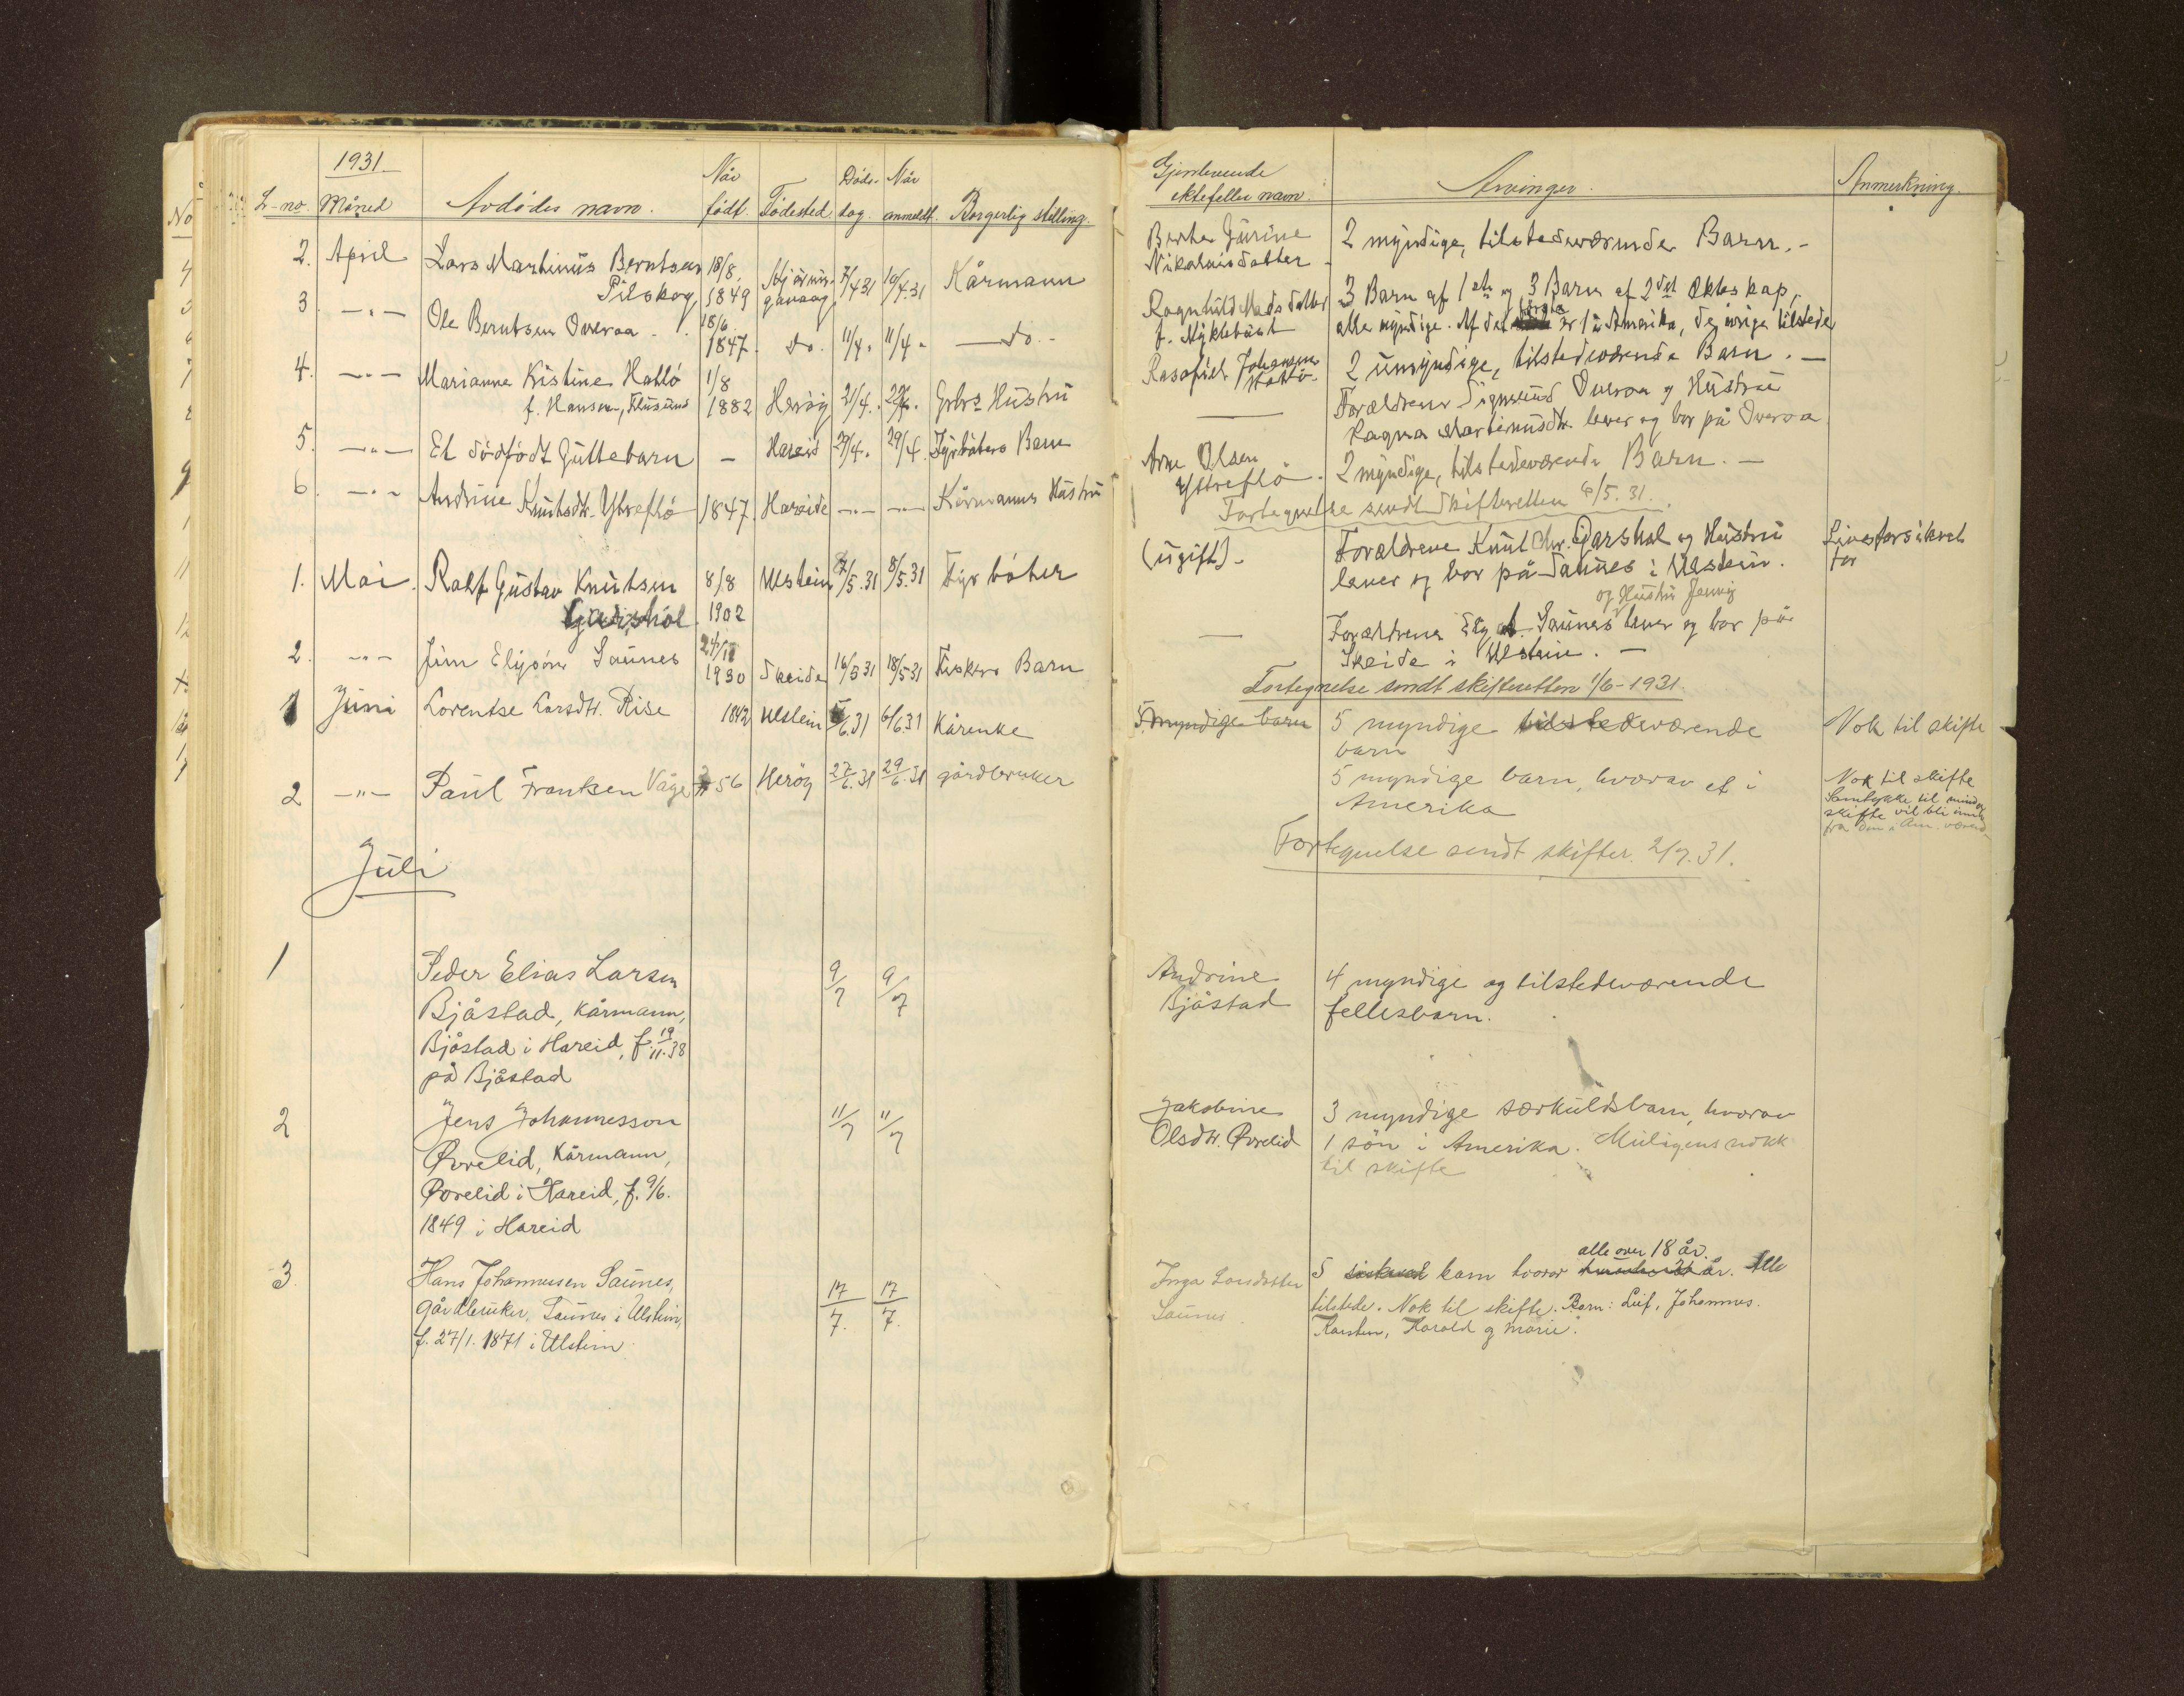 1931
L-no. Måned Avdødes navn. Når født. Fødested Døds-dag. Når anmeldt. Borgerlig stilling.
Gjenlevende ektefelles navn. Arvinger. Anmerkning.
2. April Lars Martinus Berntsen 18/8. 7/4 31 10/4.31 Kårmann
Pilskog 1849
Berte Gurine 2 myndige, tilstedeværende Barn. -
Nikolaisdatter
3 -"- Ole Berntsen Overaa. 18/6 1847. do. 11/4. 11/4. do.-
Ragnhild Madsdatter 3 Barn af 1ste og 3 Barn af 2det Ekteskap,
f. Myklebust alle myndige. Af det første er 1 i Amerika, de øvrige tilstede
4. -"- Marianne Kristine Hatlø 1/8 1882 Herøy 21/4. Grbrs Hustru
f. Hansen,
Rasafiel Johansen Hatlø. 2 umyndige, tilstedeværende Barn. -
5. -"- Et dødfødt Guttebarn - Hareid 29/4. 29/4. Fyrbøters Barn
Forældrene Sigmund Overaa og Hustru
Ragna Martinusdtr. lever og bor på Overaa
6. -"- Andrine Knutsdtr. Ytreflø 1847. Hareide -"- -"- Kårmanns Hustru
Arne Olsen Ytreflø. 2 myndige, tilstedeværende Barn. -
Fortegnelse sendt Skifteretten 6/5.31.
1. Mai. Ralf Gustav Knutsen 8/8 Ulstein 7/5.31 8/5.31 Fyrbøter
Garshol 1902
(ugift). Forældrene Knut Chr. Garshol og Hustru Livsforsikret
lever og bor på Saunes i Ulstein. for
og Hustru Jenny
2. -"- Jim Elysøn Saunes 24/12 1930 Skeide 16/5 31 18/5 31 Fiskers Barn
Forældrene Ely A. Saunes lever og bor på
Skeide i Ulstein. -
Fortegnelse sendt skifteretten 1/6-1931.
1 Juni Lorentse Larsdtr. Rise 1842 Ulstein 5/6.31 6/6.31 Kårenke
5 myndige barn 5 myndige tilstedeværende Nok til skifte
barn
2 -"- Paul Frantsen Våge 56 Herøy 27/6.31 29/6.31 gårdbruker
5 myndige barn, hvorav et i Nok til skifte
Amerika Samtykke til
skifte vil bli
fra den i Am.
Fortegnelse sendt skifter. 2/7.31.
Juli
1 Peder Elias Larsen 9/7 9/7
Bjåstad, Kårmann,
Bjåstad i Hareid, f. 19/11.38
på Bjåstad
Andrine 4 myndige og tilstedeværende
Bjåstad fellesbarn.
2 Jens Johannesson 11/7 11/7
Øvrelid, Kårmann,
Øvrelid i Hareid, f. 9/6.
1849 i Hareid
Jakobine 3 myndige særkuldsbarn, hvorav
Olsdtr. Øvrelid 1 søn i Amerika. Muligens nokk
til skifte
3. Hans Johannesen Saunes, 17/7. 17/7.
gårdbruker, Saunes i Ulstein,
f. 27/1. 1871 i Ulstein
alle over 18 år.
Inga Larsdatter 5 barn hvorav år. Alle
Saunes tilstede. Nok til skifte. Barn: Leif, Johannes.
Karsten, Harald og Marie.